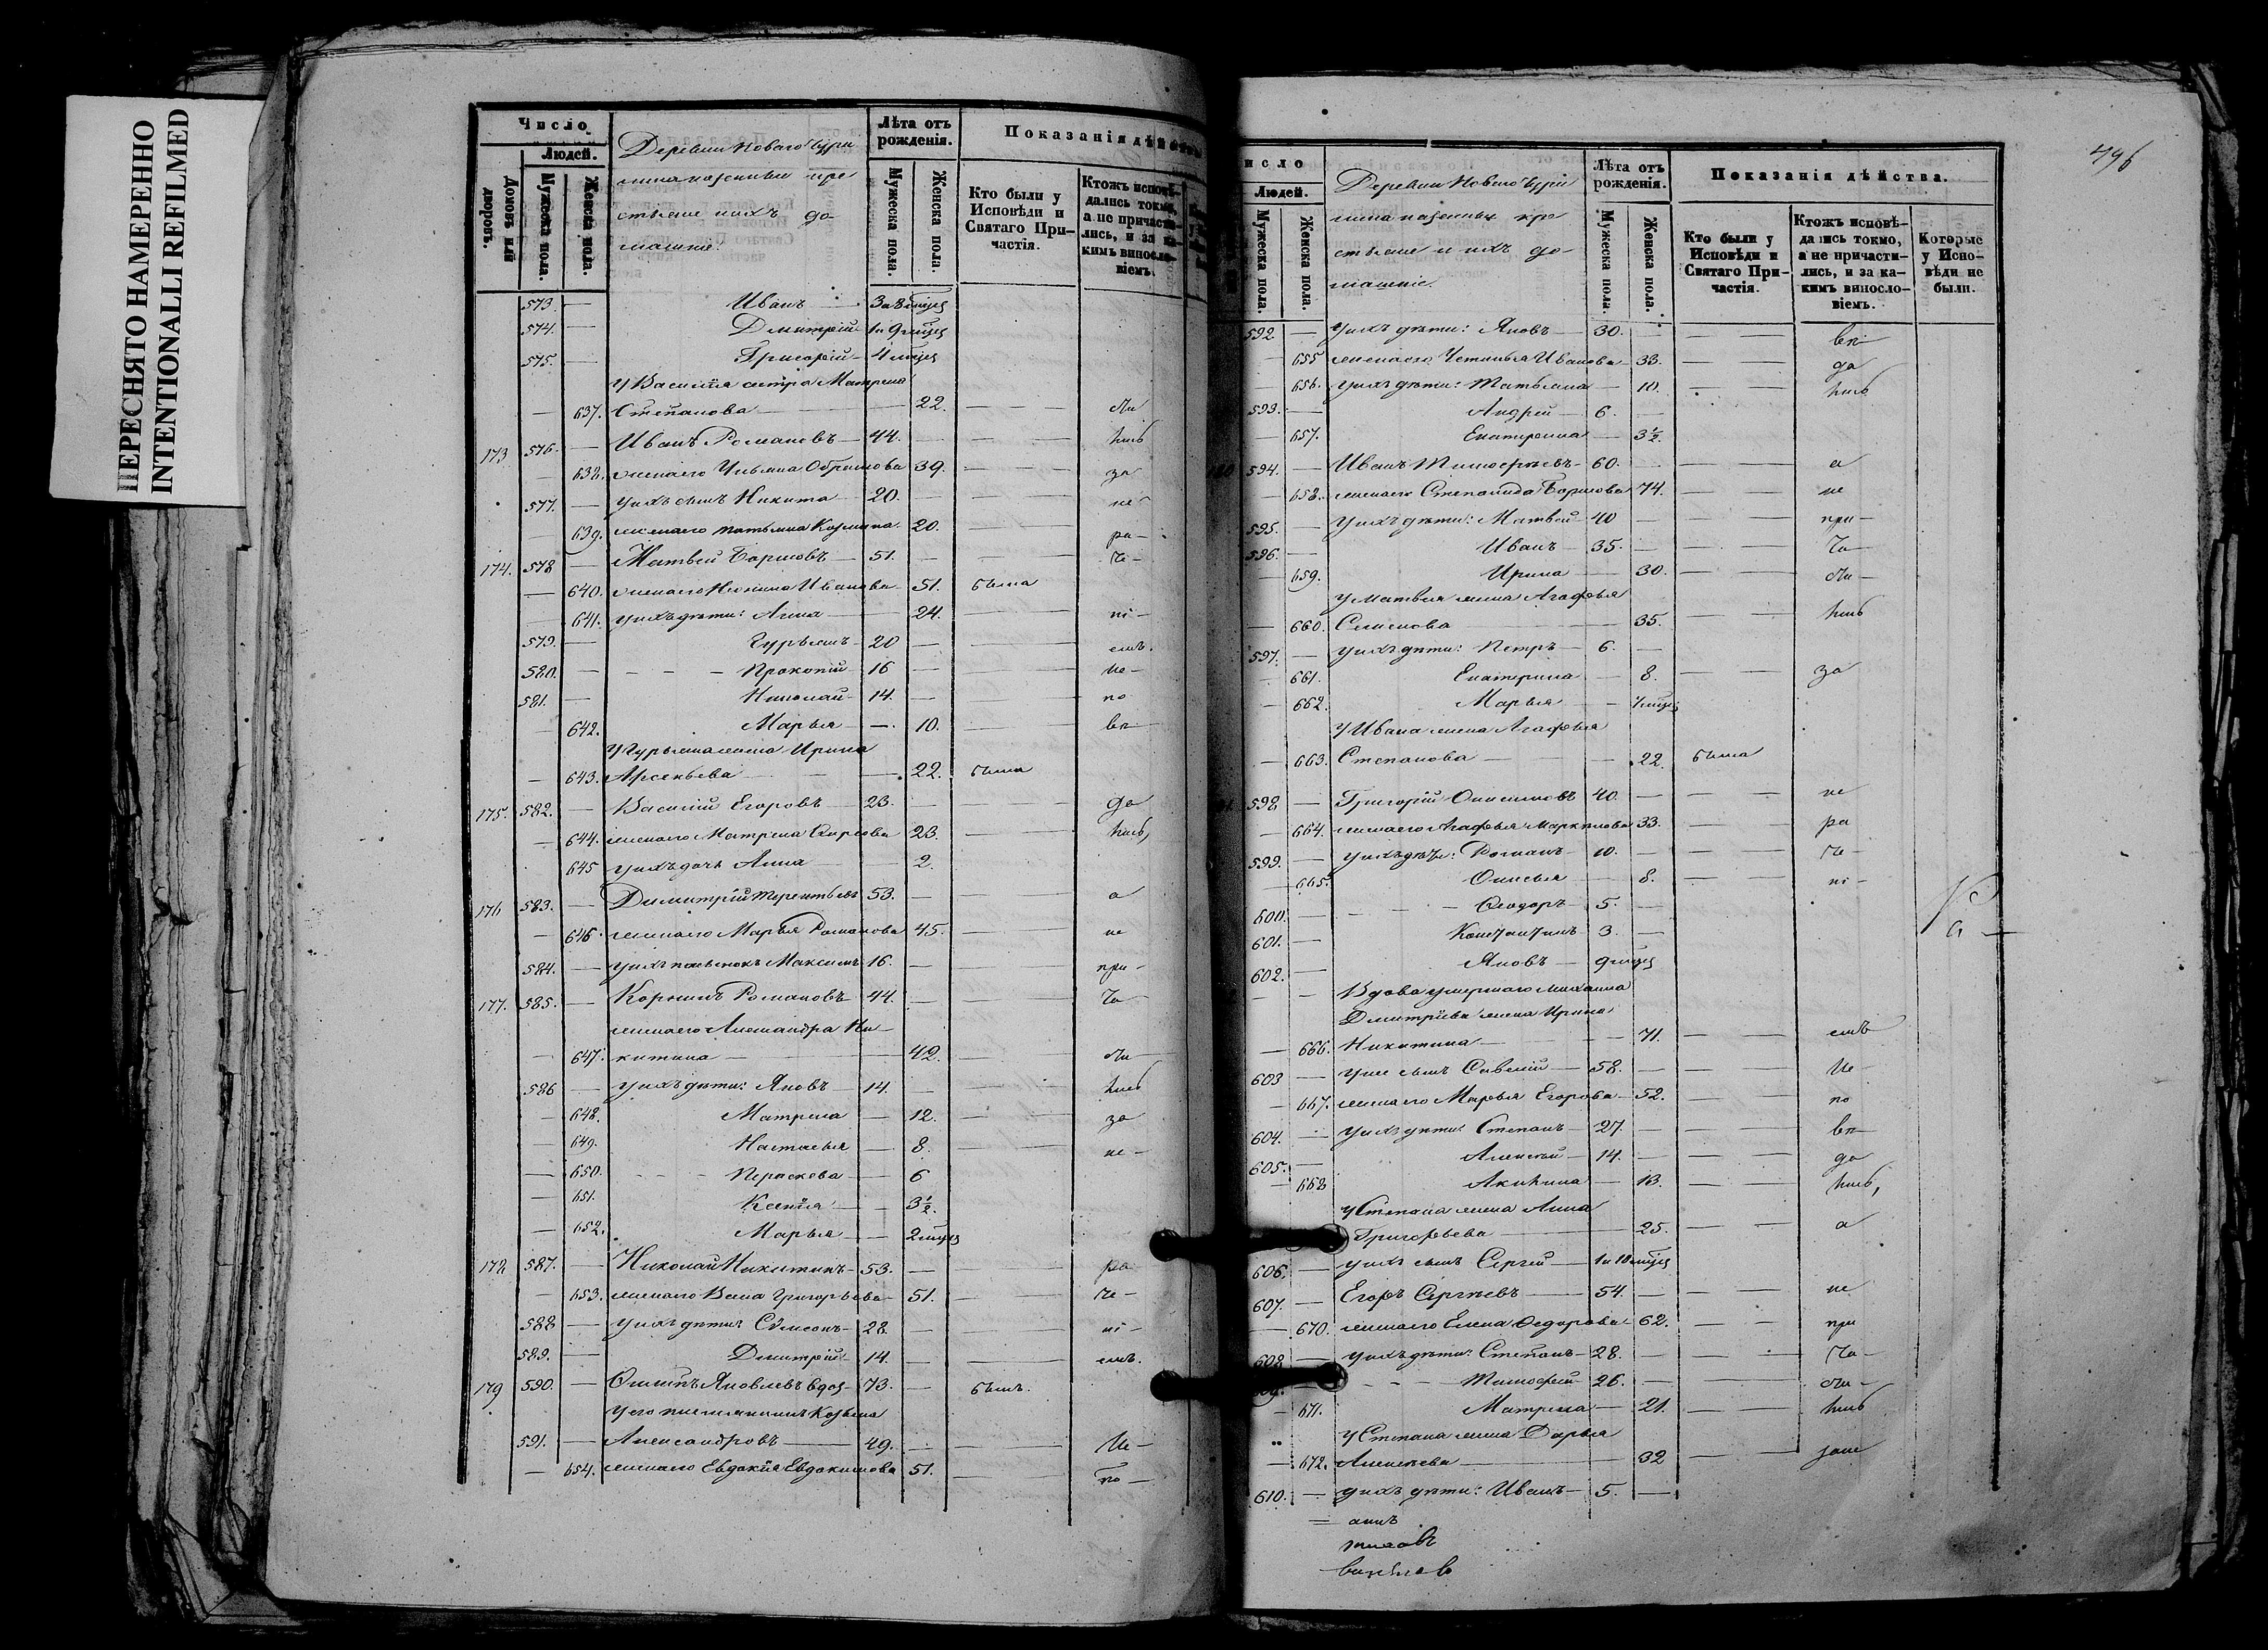 ПЕРЕСНЯТО НАМЕРЕННО
INTENTIONALLI REFILMED
Число
Людей.
Домовъ или дворовъ.
Мужеска пола.
Женска пола.
Деревни Новаго
крестьяне и ихъ до-
машніе.
Лѣта отъ рожденія.
Мужеска пола.
Женска пола.
Показанія дѣйства
Кто были у Исповѣди и Святаго Причастія.
Ктожъ исповѣдались токмо, а не причастились, и за какимъ винословіемъ.
573. — Иванъ — 3 и 8 мѣсц
574. — Дмитрій 1 и 9 мѣсц
575. — Григорій — 4 мѣсц
У Василія сестра Матрена
— 637. Степанова — 22.
173. 576. — Иванъ Романовъ — 44.
— 638. жена его Ульяна 39. — за
577. — у нихъ сынъ Никита — 20. — не
— 639. жена его Татьяна Козмина 20. — ра-
174. 578 — Матвей Борисовъ — 51. — че-
— 640. жена его Иванова — 51. была
— 641. у нихъ дѣти: Анна — 24. — ні-
579. — Гурьянъ — 20 — емъ.
580. — Прокопій — 16 — Не-
581. — Николай — 14. — по
— 642. Марья — 10. — вп
У Гурьяна жена Ирина
— 643. Арсеньева — 22. была
175. 582. — Василій Егоровъ — 23. — до
— 644. жена его Матрена 23. —
645 у нихъ дочь Анна — 2.
176 583. — Димитрій Терентьевъ 53. — а
— 646. жена его Марья Романова 45. — не
584. — у нихъ пасынокъ Максимъ 16. — при-
177. 585. — Корнилъ Романовъ — 44. — ча-
жена его Александра Ни-
— 647. китина — 42. —
586 — у нихъ дѣти: Яковъ — 14. —
— 648. Матрена — 12. — за
— 649. Настасья — 8. — не-
— 650. Параскева — 6
— 651. Ксенія — 3½.
— 652. Марья — 2 мѣсц
178 587. — Николай Никитинъ — 53. — ра
— 653. жена его Васса Григорьева — 51. — че-
588 — у нихъ дѣти: Сѵмеонъ — 28. — ні-
589. — Дмитрій — 14. — емъ.
179 590. — Осипъ Яковлевъ вдов — 73. — былъ.
У его племянникъ Козьма
591. — Александровъ — 49. — Не-
— 654. жена его Евдокія Евдокимова 51. — по-
496
число
Людей.
Мужеска пола.
Женска пола.
Деревни Новаго
крестьяне и ихъ до-
машніе.
Лѣта отъ рожденія.
Мужеска пола.
Женска пола.
Показанія дѣйства.
Кто были у Исповѣди и Святаго Причастія.
Ктожъ исповѣдались токмо, а не причастились, и за какимъ винословіемъ.
Которые у Исповѣди не были.
592 — У нихъ дѣти: Яковъ — 30. — вп-
— 655 жена его Устинья Иванова — 33. — до
— 656. у нихъ дѣти: Татьяна — 10. —
593. — Андрей — 6. —
— 657. Екатерина — 3½.
594. — Иванъ Тимофѣевъ — 60. — а
— 658. жена его Степанида Борисова 74. — не
595. — у нихъ дѣти: Матвей — 40 — при-
596. — Иванъ — 35. — ча-
— 659. Ирина — 30. —
У Матвея жена Агафья
— 660. Семенова — 35. —
597. — у нихъ дѣти: Петръ — 6. —
— 661. Екатерина — 8. — за
— 662. Марья — 7 мѣсц
У Ивана жена Агафья
— 663. Степанова — 22. была
598 — Григорій Онисимовъ 40. — не
— 664. жена его Агафья Маркилова 33. — ра
599. — у нихъ дѣти: Романъ — 10. — че-
— 665. Онисья — 8. — ні-
600. — Ѳеодоръ — 5. —
601. — Константинъ — 3. —
602. — Яковъ — 9 мѣсц
Вдова умершаго Михаила
Дмитріева жена Ирина
— 666. Никитина — 71. — емъ
603 — у нее сынъ Савелій — 58. — Не-
— 667. жена его Марья Егорова — 52. — по
604. — у нихъ дѣти: Степанъ — 27. — вп-
605. — Алексѣй — 14. — до
— 668 Акилина — 13. —
У Степана жена Анна
Григорьева — 25. — а
606. — у нихъ сынъ Сергей — 1 и 10 мѣсц
607. — Егоръ Сергѣевъ — 54. — не
— 670. жена его Елена Ѳедорова — 62. — при
608 — у нихъ дѣти: Степанъ — 28. — ча-
609. — Тимофей — 26. —
— 671. Матрена — 21. —
У Степана жена Дарья
— 672. Алексѣева — 32 —
610. — у нихъ дѣти: Иванъ — 5. —